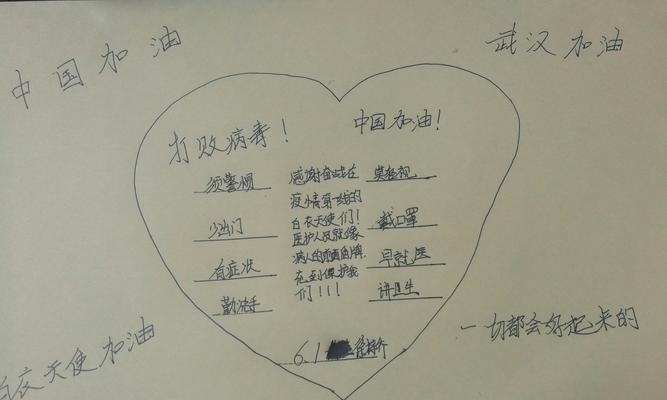 中国加油
武汉加油
打败病毒！
中国加油！
须警惕
莫轻视
少出门
戴口罩
有症状
早就医
勤洗手
讲卫生
感谢奋战在
疫情第一线的
白衣天使们！
医护人员就像
病人的前面盾牌,
在到保护我
们！！！
6.1
白衣天使加油
一切都会好起来的